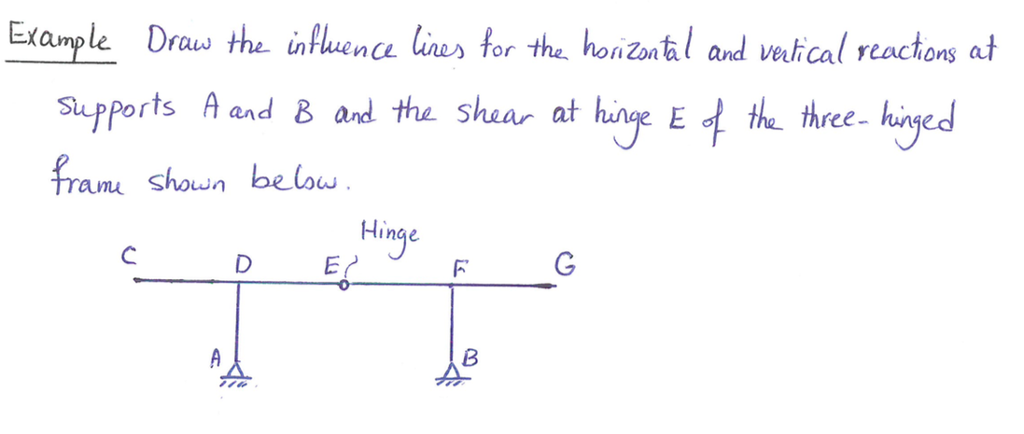 Example Draw the influence lines for the horizontal and vertical reactions at
supports A and B and the shear at hinge E of the three-hinged
frame shown below.
Hinge
C D E F G
A B